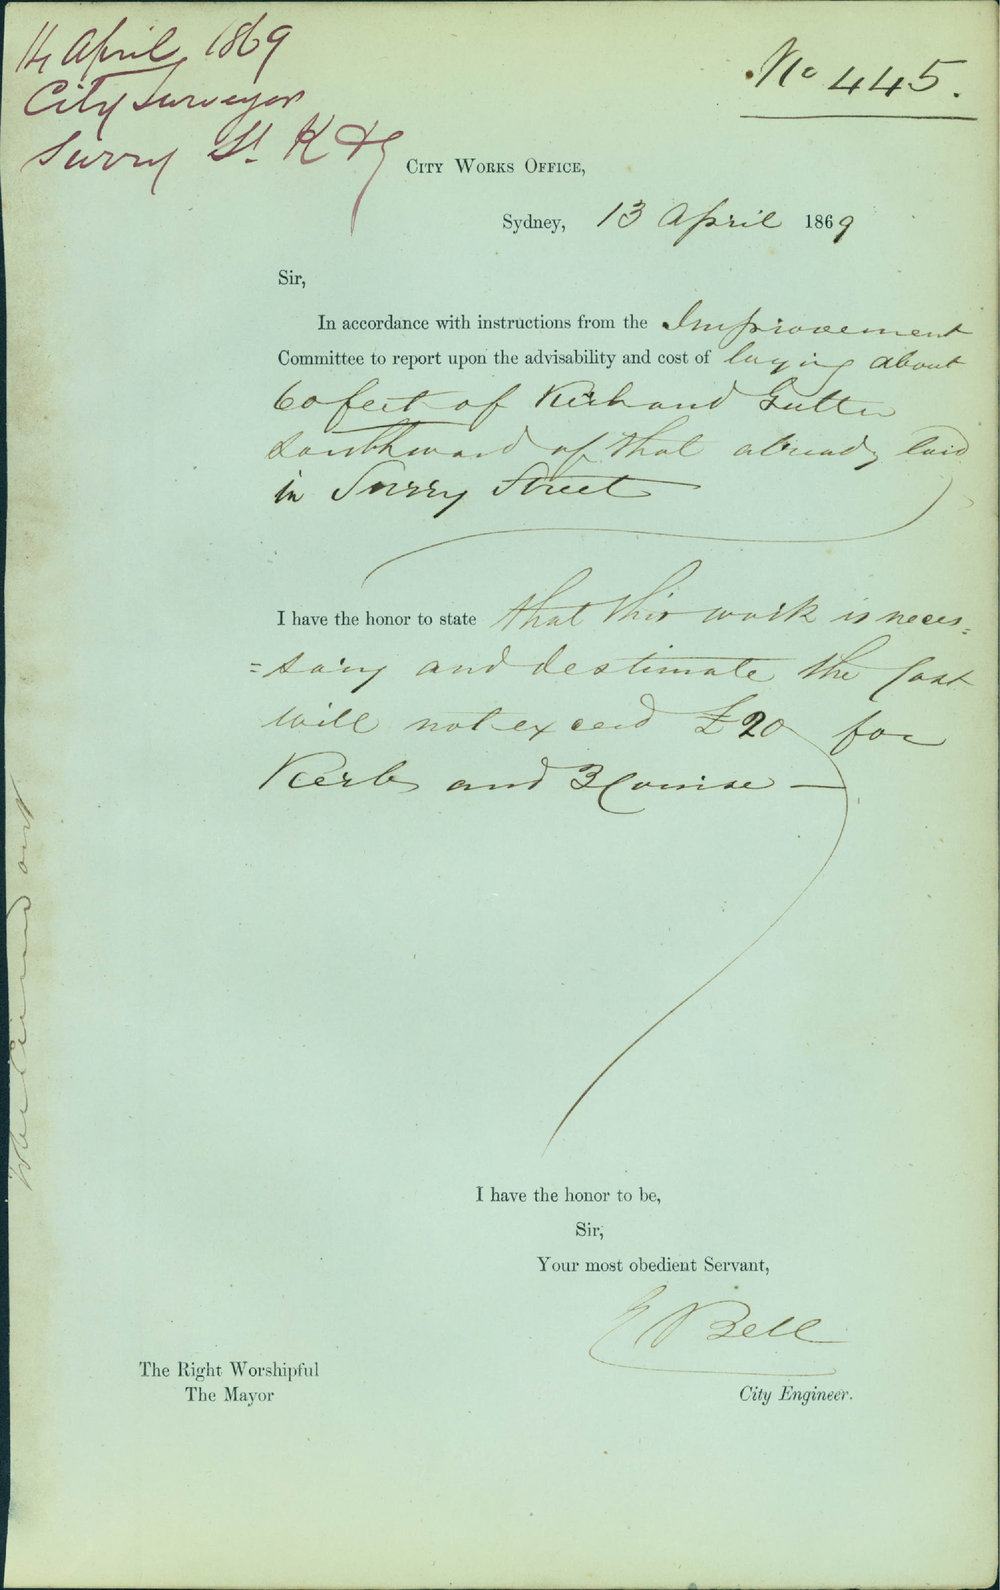 14 April 1869
City Surveyor
Surry St. K & G
No 445.
City Works Office,
Sydney, 13 April 1869
Sir,
In accordance with instructions from the Improvement
Committee to report upon the advisability and cost of laying about
60 feet of Kerb and Gutter
Southward of that already laid
in Surry Street
I have the honor to state that this work is neces=
=sary and destimate the Cost
will not exceed £20 for
Kerb and 3 Course —
I have the honor to be,
Sir,
Your most obedient Servant,
E Bell
The Right Worshipful
The Mayor
City Engineer.